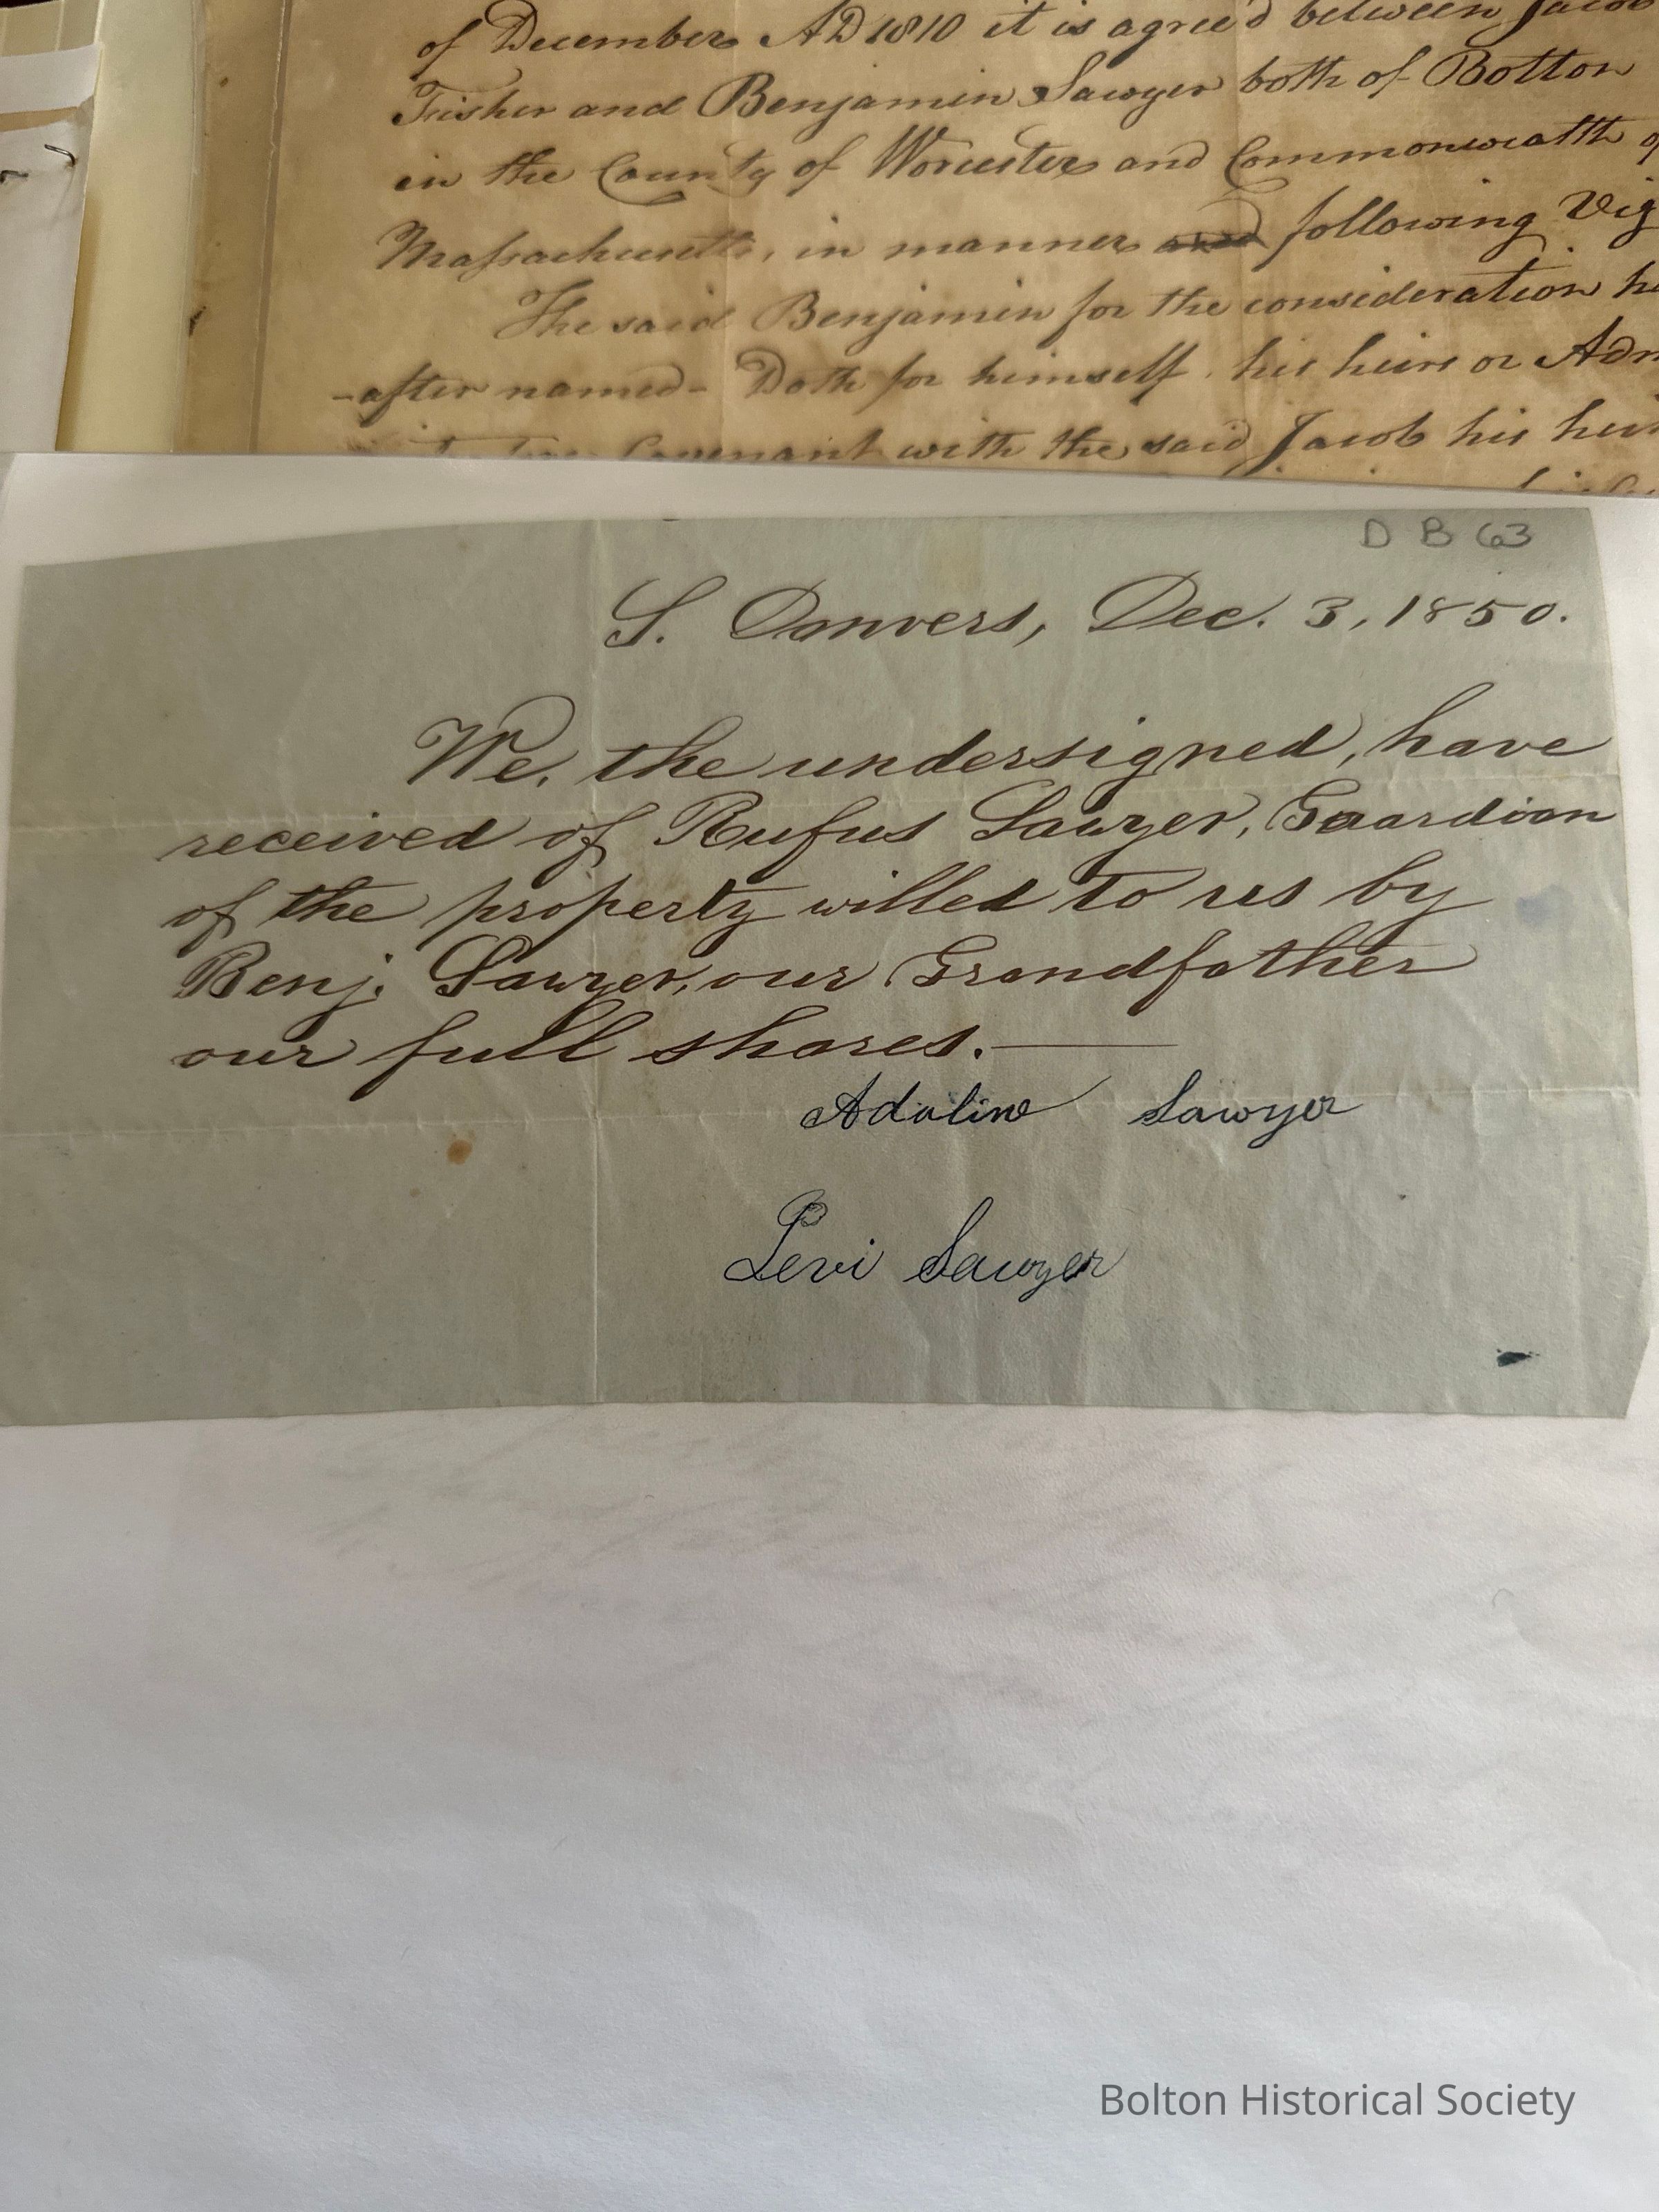 of December AD 1810 it is agree'd between Jacob
Fisher and Benjamin Sawyer both of Bolton
in the County of Worcester and Commonwealth of
Massachusetts, in manner and following Viz
The said Benjamin for the consideration he
-after named- Doth for himself his heirs or Adm
Covenant with the said Jacob his heir
D B 63
S. Danvers, Dec. 3, 1850.
We, the undersigned, have
received of Rufus Sawyer, Guardian
of the property willed to us by
Benj. Sawyer, our Grandfather
our full shares.
Adaline Sawyer
Levi Sawyer
Bolton Historical Society